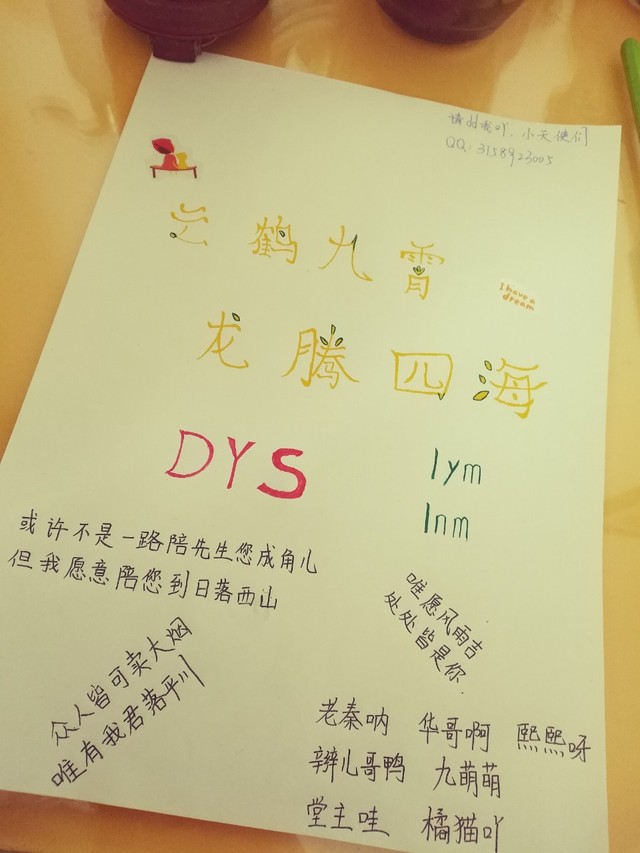 请dd我吖、小天使们
QQ: 3158923005
云鹤九霄
I have a
dream
龙腾四海
DYS
lym
lnm
或许不是一路陪先生您成角儿
但我愿意陪您到日落西山
唯愿风雨吉
处处皆是你.
众人皆可卖大烟
唯有我君落平川
老秦呐 华哥啊 熙熙呀
辫儿哥鸭 九萌萌
堂主哇 橘猫吖